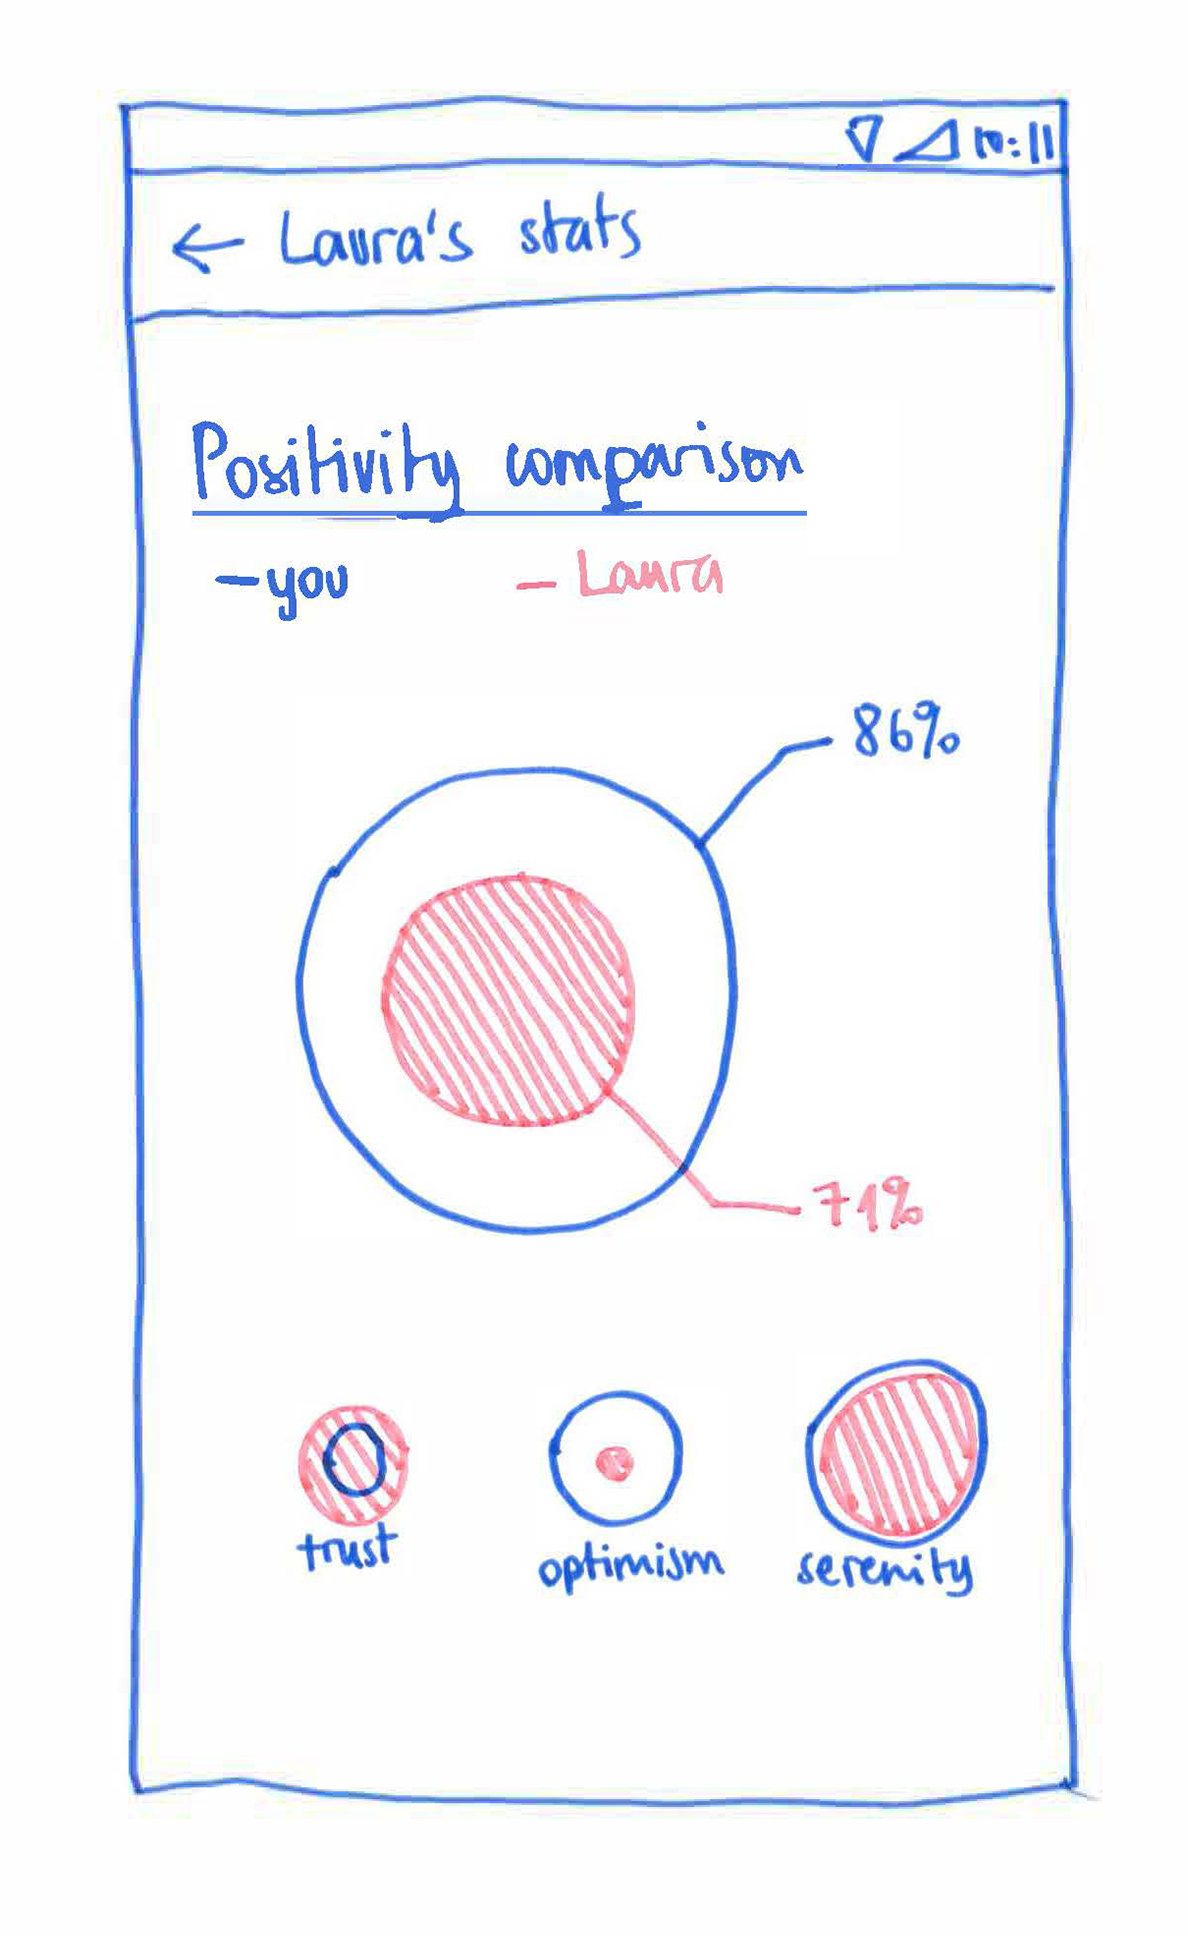 10:11
← Laura's stats
Positivity comparison
– you – Laura
86%
71%
trust optimism serenity